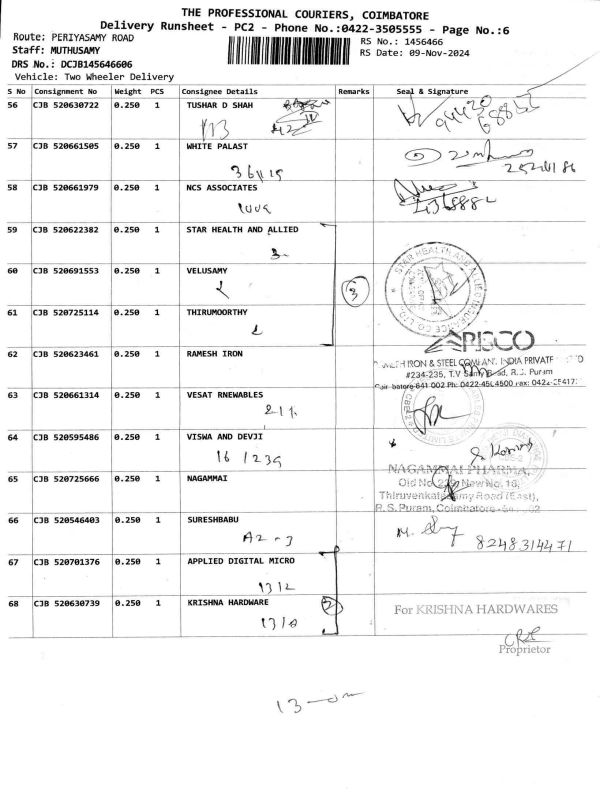 THE PROFESSIONAL COURIERS, COIMBATORE
Delivery Runsheet - PC2 - Phone No.:0422-3505555 - Page No.:6
Route: PERIYASAMY ROAD
RS No.: 1456466
Staff: MUTHUSAMY
RS Date: 09-Nov-2024
DRS No.: DCJB145646606
Vehicle: Two Wheeler Delivery
S No Consignment No Weight PCS Consignee Details Remarks Seal & Signature
56 CJB 520630722 0.250 1 TUSHAR D SHAH
57 CJB 520661505 0.250 1 WHITE PALAST
58 CJB 520661979 0.250 1 NCS ASSOCIATES
1009
59 CJB 520622382 0.250 1 STAR HEALTH AND ALLIED
3
60 CJB 520691553 0.250 1 VELUSAMY
3
61 CJB 520725114 0.250 1 THIRUMOORTHY
ARISCO
62 CJB 520623461 0.250 1 RAMESH IRON
IRON & STEEL COMPANY INDIA PRIVATE
#234-235, T.V Samy Road, R.S. Puram
641 002 Ph: 0422-4504500
63 CJB 520661314 0.250 1 VESAT RNEWABLES
211
64 CJB 520595486 0.250 1 VISWA AND DEVJI
16 1239
65 CJB 520725666 0.250 1 NAGAMMAI
NAGAMMAI PHARMA,
New No. 18,
Road (East),
R.S. Puram, Coimbatore
66 CJB 520546403 0.250 1 SURESHBABU
A2-3
8248314471
67 CJB 520701376 0.250 1 APPLIED DIGITAL MICRO
1312
68 CJB 520630739 0.250 1 KRISHNA HARDWARE
2
1310
For KRISHNA HARDWARES
Proprietor